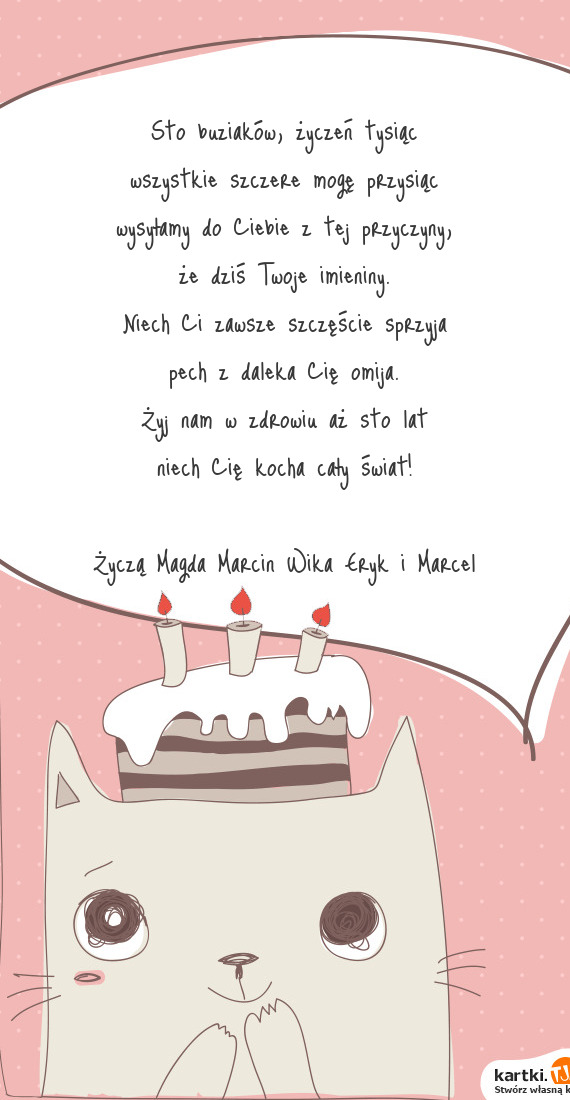 Sto buziaków, życzeń tysiąc
wszystkie szczere mogę przysiąc
wysyłamy do Ciebie z tej przyczyny,
że dziś Twoje imieniny.
Niech Ci zawsze szczęście sprzyja
pech z daleka Cię omija.
Żyj nam w zdrowiu aż sto lat
niech Cię kocha cały świat!
Życzą Magda Marcin Wika Eryk i Marcel
kartki.TJ
Stwórz własną k